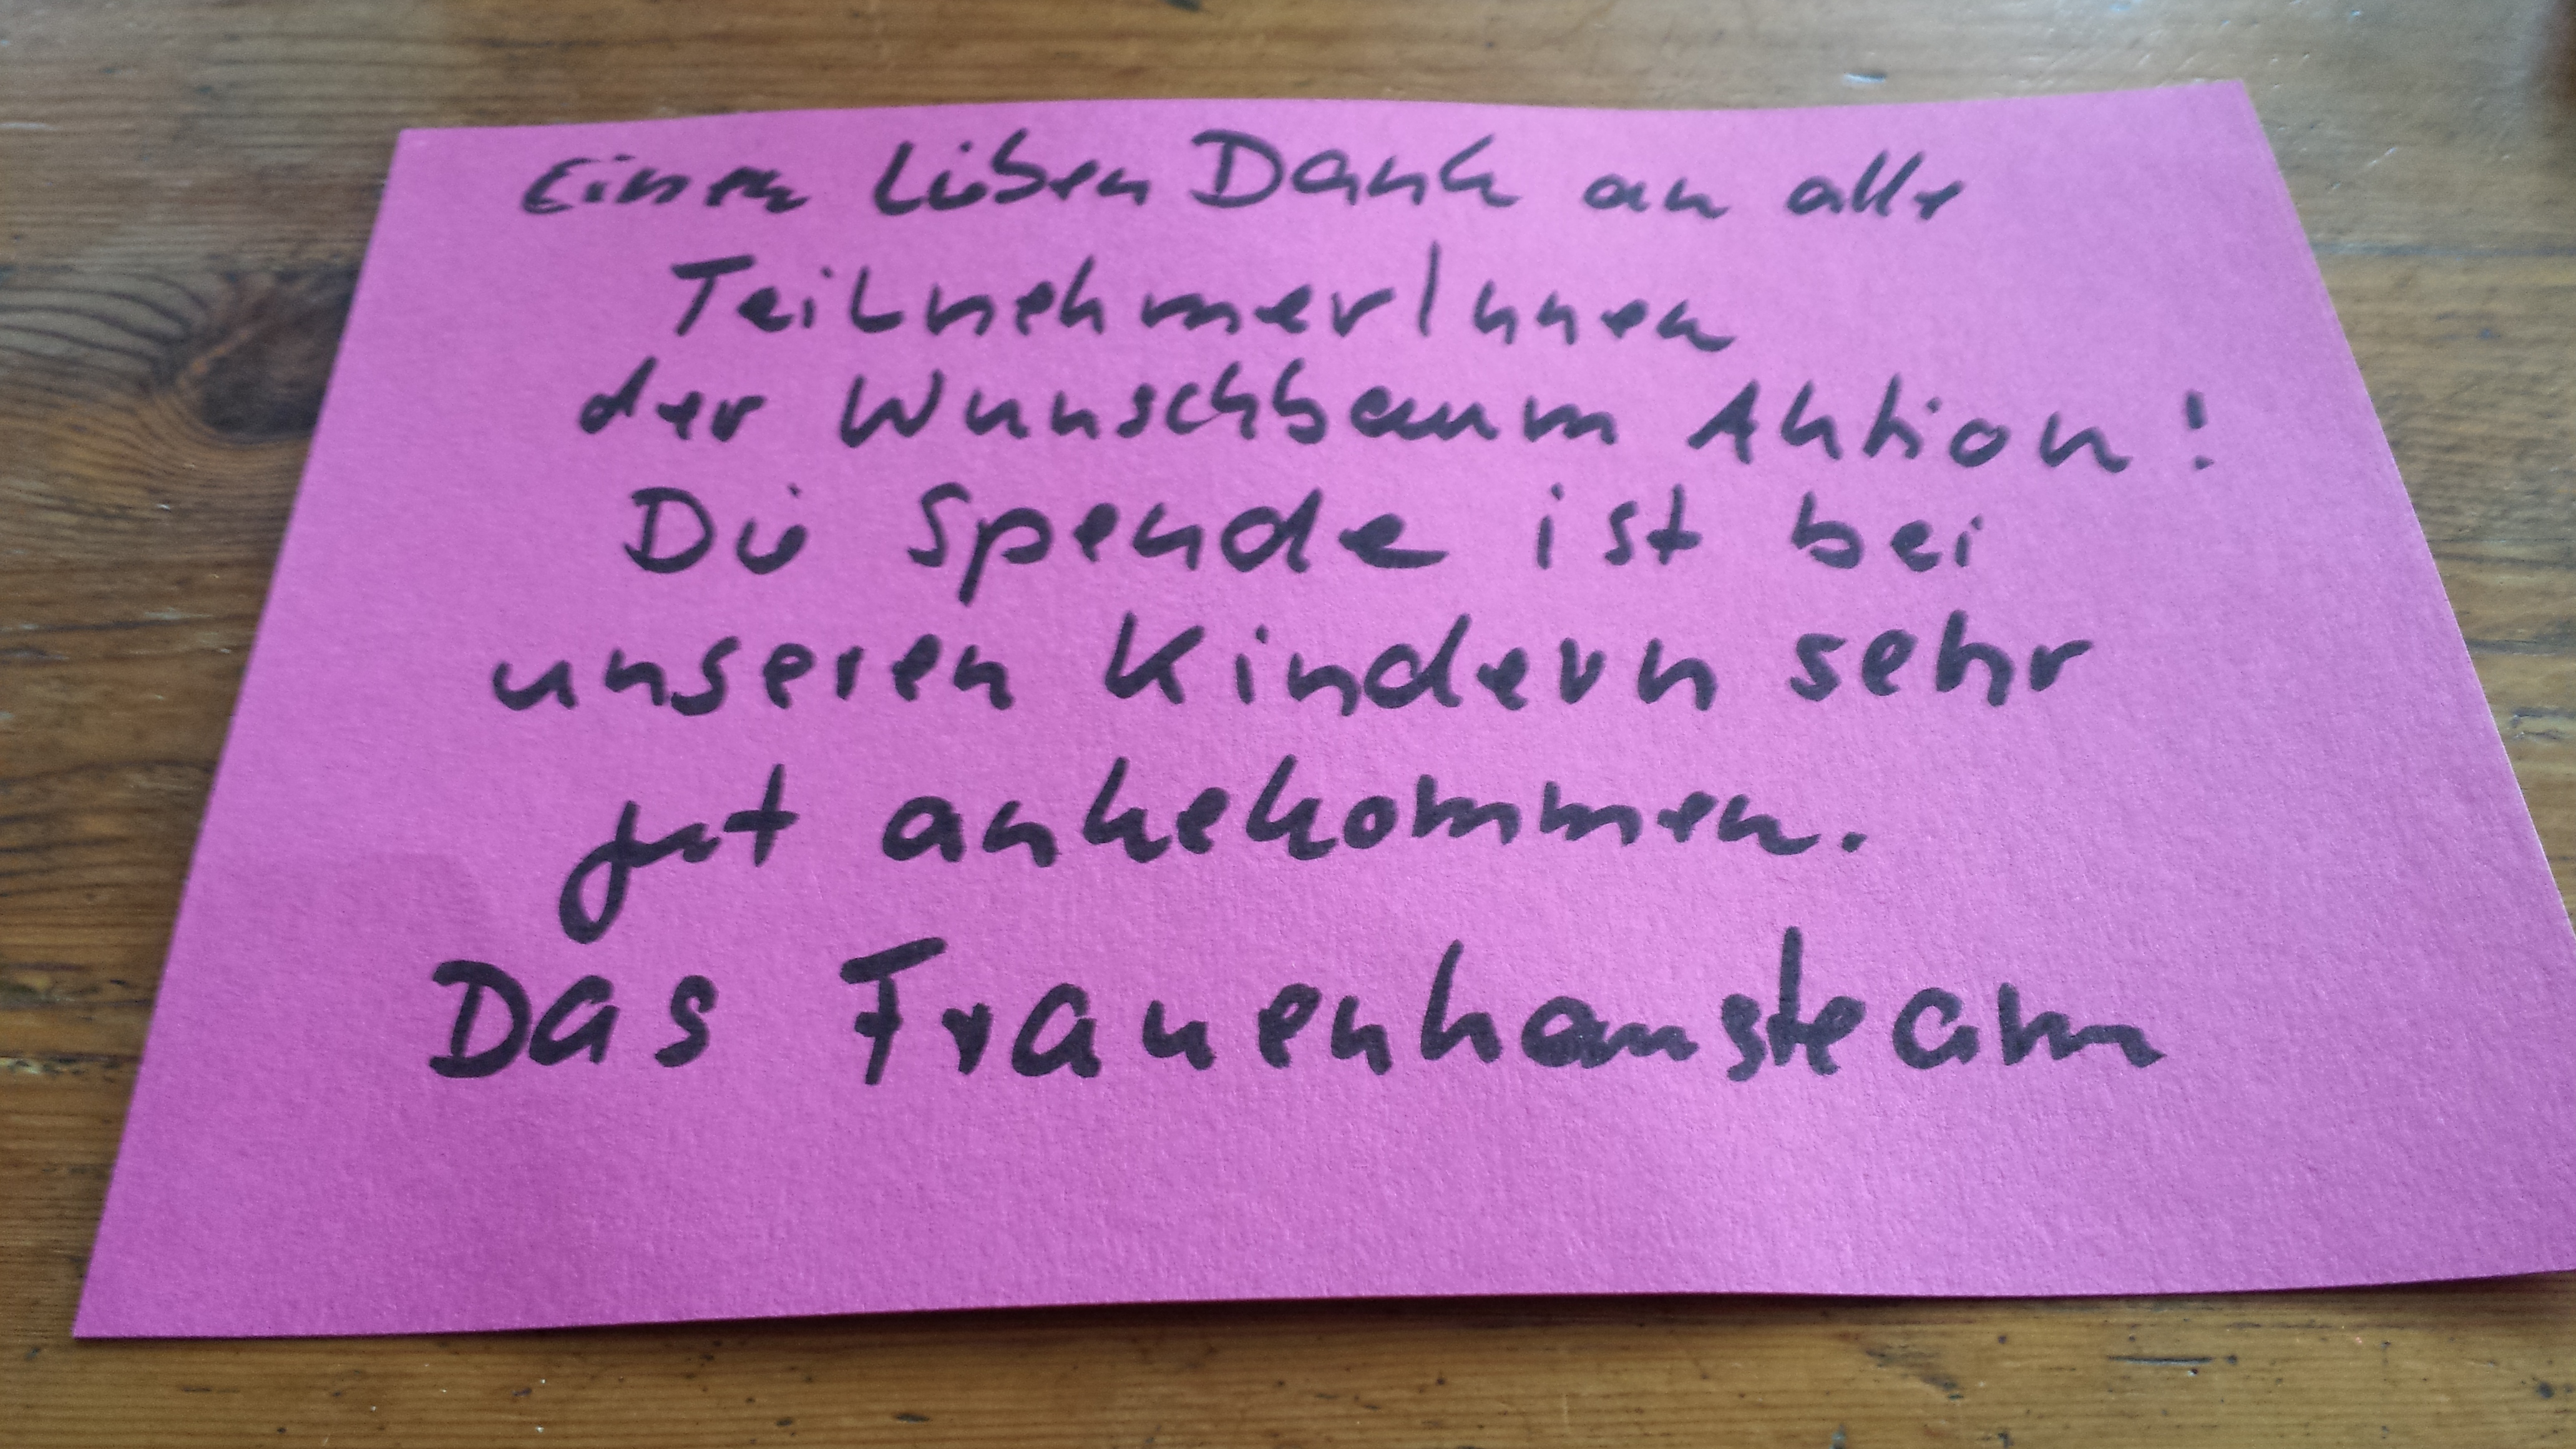 Einen lieben Dank an alle
TeilnehmerInnen
der Wunschbaum Aktion!
Die Spende ist bei
unseren Kindern sehr
gut ankekommen.
Das Frauenhausteam